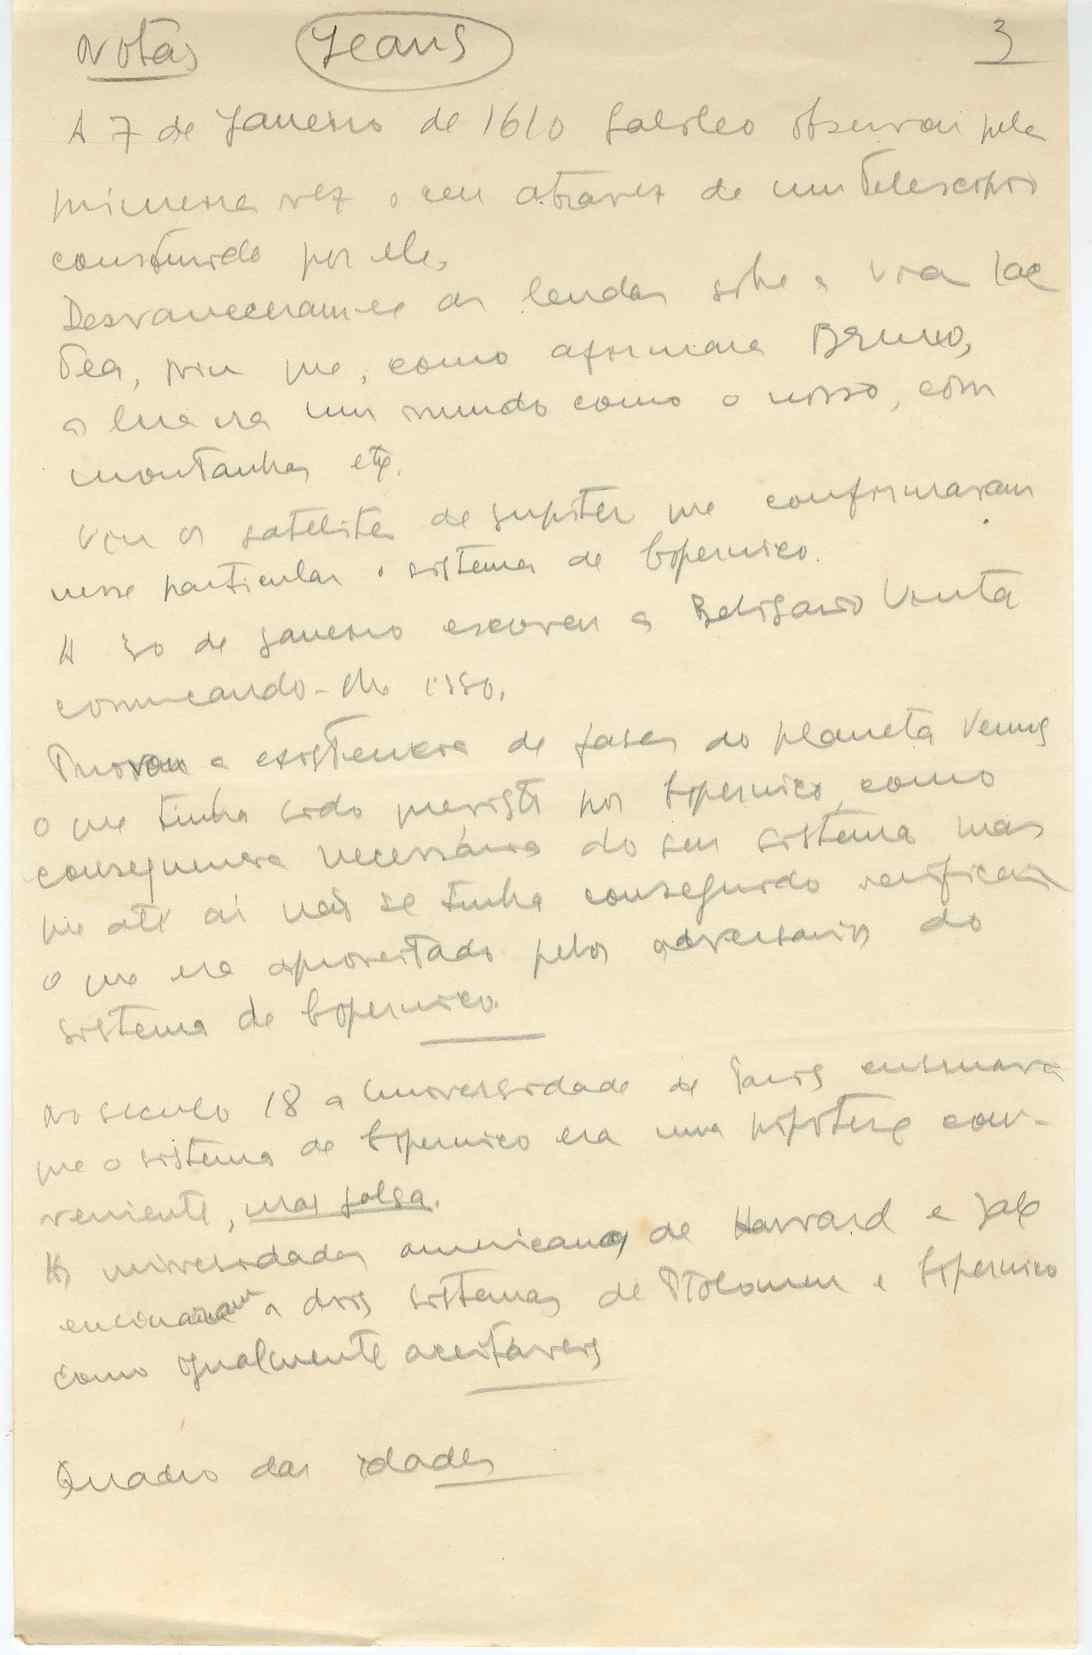 Notas Jeans 3
A 7 de Janeiro de 1610 Galileo observou pela
primeira vez o ceu atravez de um telescopio
construido por ele.
Desvaneceram-se as lendas sobre a via lac
tea, viu que, como afirmara Bruno,
a lua era um mundo como o nosso, com
montanhas etc.
Viu os satelites de Jupiter que confirmaram
nesse particular o sistema de Copernico.
A 30 de Janeiro escreveu a Belisario Vinta
comunicando-lhe isso.
Provou a existencia de fases do planeta Venus
o que tinha sido previsto por Copernico, como
consequencia necessária do seu sistema mas
que até aí não se tinha conseguido verificar
o que era aproveitado pelos adversarios do
sistema de Copernico.
No seculo 18 a Universidade de Paris ensinava
que o sistema de Copernico era uma hipotese con-
veniente, mas falsa.
As universidades americanas de Harvard e Jale
encinavam os dois sistemas de Ptolomeu e Copernico
como igualmente aceitaveis
Quadro das idades